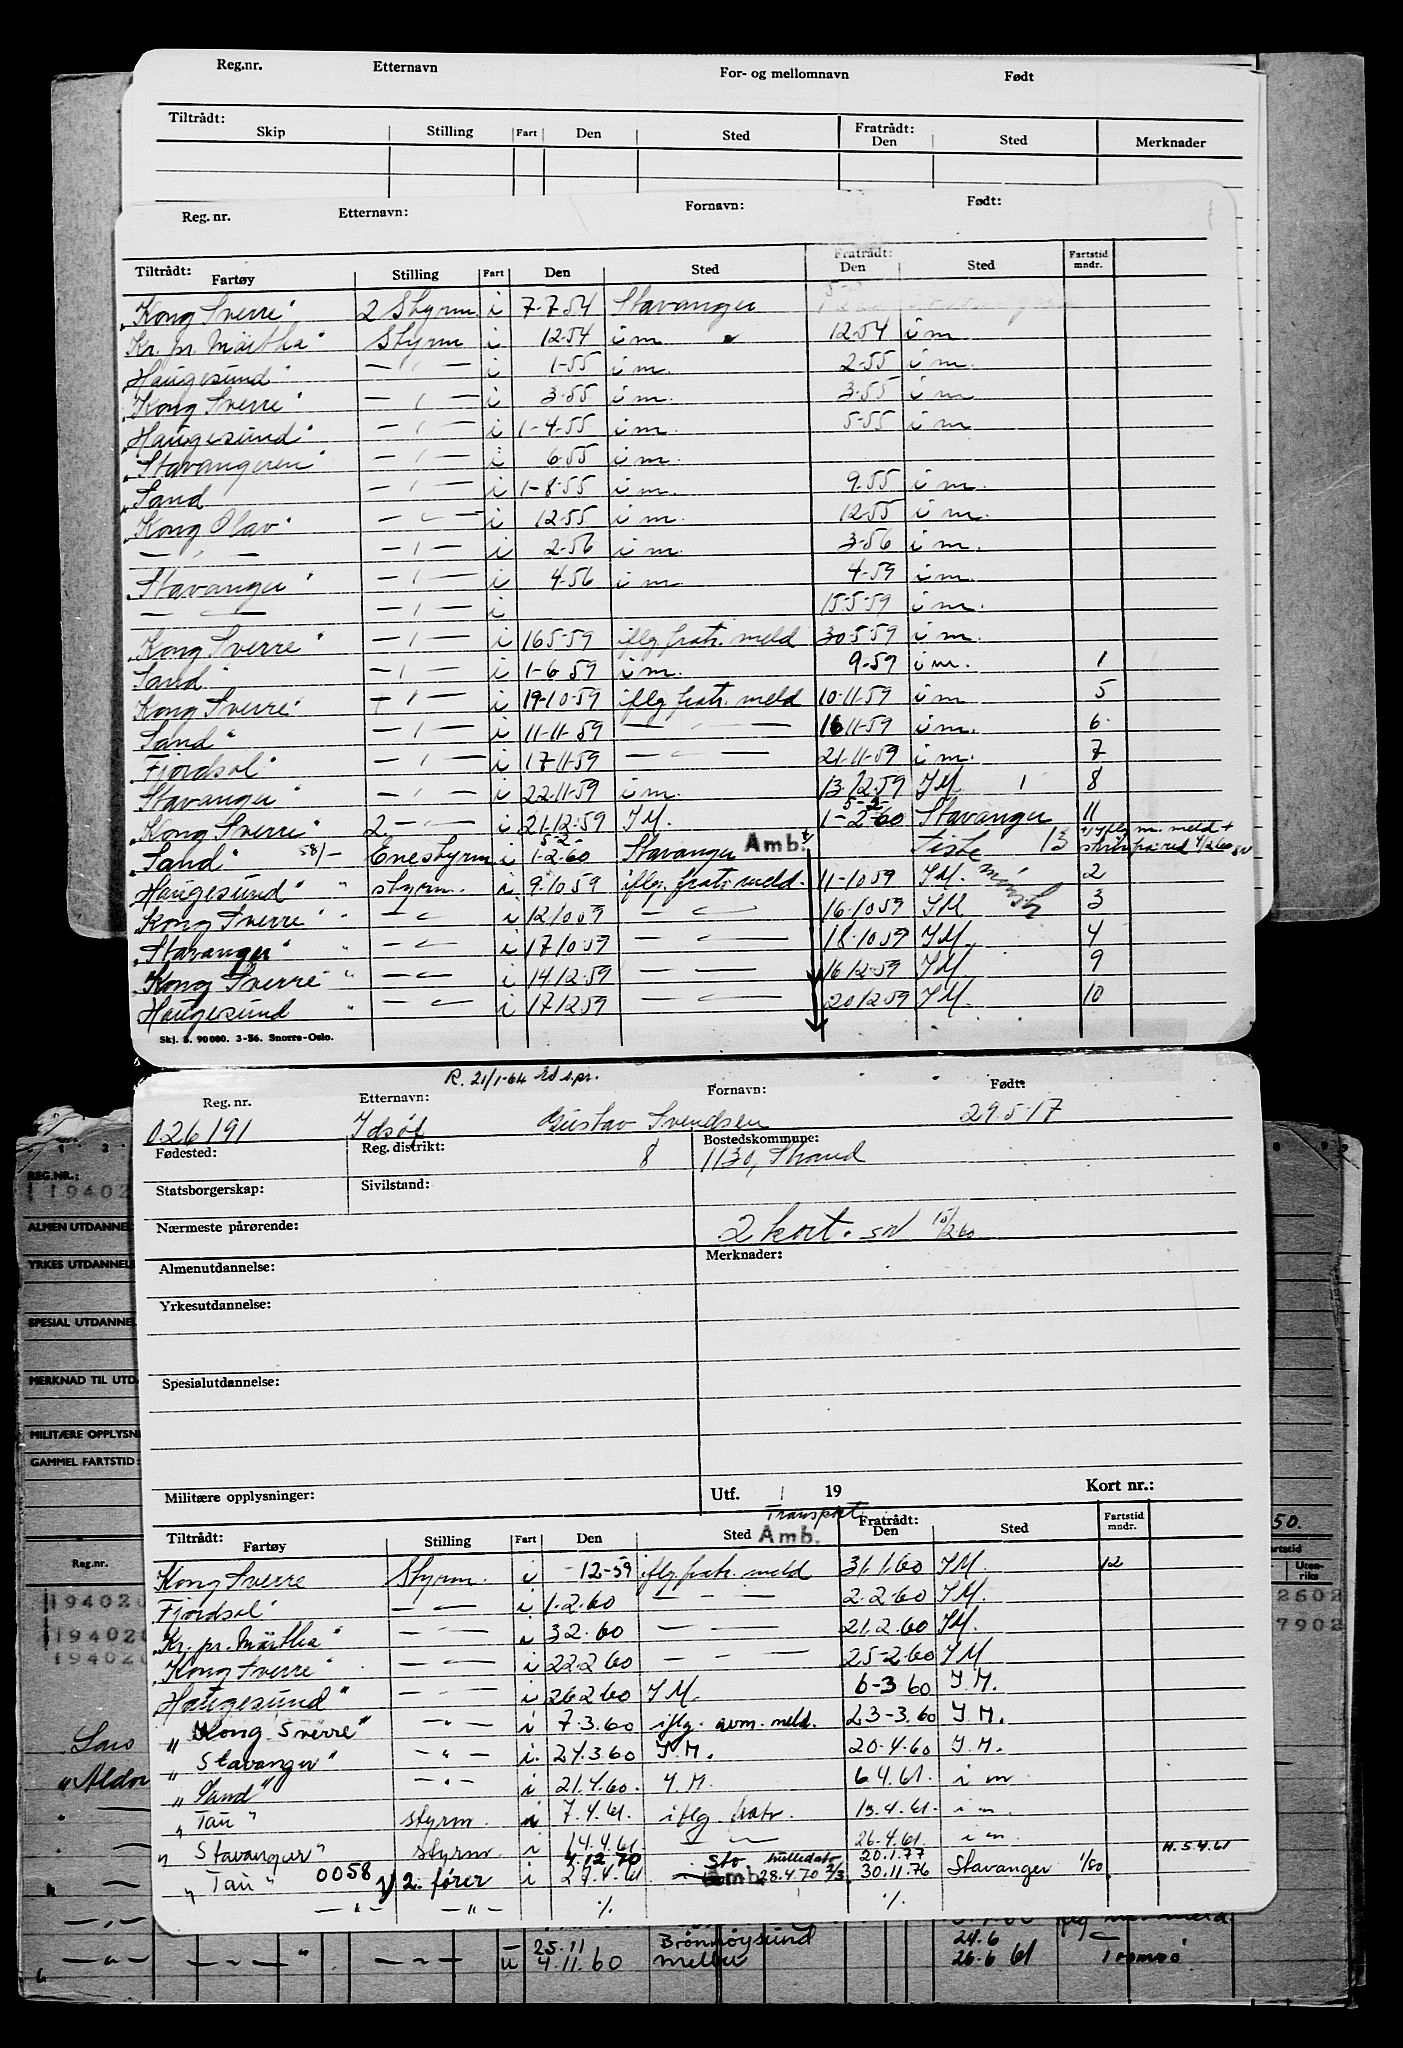 Reg.nr. Etternavn For- og mellomnavn Født
Tiltrådt: Skip Stilling Fart Den Sted Fratrådt: Den Sted Merknader
Reg. nr. Etternavn: Fornavn: Født:
Tiltrådt: Fartøy Stilling Fart Den Sted Fratrådt: Den Sted Fartstid mndr.
"Kong Sverre" 2 Styrm i 7-7-54 Stavanger
Kr. pr. Märtha" Styrm i 12-54 i m 12-54 i m
Haugesund" — " — i 1-55 i m. 2-55 i m
"Kong Sverre" — " — i 3-55 i m. 3-55 i m
"Haugesund" — " — i 1-4-55 i m. 5-55 i m
"Stavangeren" — " — i 6-55 i m.
"Sand — " — i 1-8-55 i m. 9-55 i m.
"Kong Olav" — " — i 12-55 i m. 12-55 i m.
— " — — " — i 2-56 i m. 3-56 i m.
"Stavanger" — " — i 4-56 i m. 4-59 i m.
— " — — " — i 15-5-59 i m.
"Kong Sverre" — " — i 16-5-59 iflg fratr. meld 30-5-59 i m.
"Sand" — " — i 1-6-59 i m. 9-59 i m. 1
"Kong Sverre" — " — i 19-10-59 iflg fratr. meld 10-11-59 i m 5
"Sand" — " — i 11-11-59 — " — 16 11-59 i m. 6
Fjordsol" — " — i 17-11-59 — " — 21-11-59 i m. 7
"Stavanger" — " — i 22-11-59 i m. 13-12-59 IM 8
"Kong Sverre" 2 — " — i 21.12-59 IM. 1-2-60 5-2- Stavanger 11
"Sand" 58/- Enestyrm i 1-2-60 5-2- Stavanger Amb. siste 13 iflg m. meld +
Haugesund" " styrm. i 9-10 59 iflg. fratr. meld. 11-10 59 IM. 2
"Kong Sverre" " — " — i 12 10 59 — " — 16-10 59 IM 3
"Stavanger" " — " — i 17 10-59 — " — 18-10 59 IM. 4
"Kong Sverre" " — " — i 14 12-59 — " — 16 12-59 IM. 9
Haugesund " — " — i 17 12 59 — " — 20 12 59 IM. 10
Skj. 8. 90 000. 3-56. Snorre-Oslo.
R. 21/1-64
Reg. nr. Etternavn: Fornavn: Født:
026191 Idsøe Gustav Svendsen 29.5.17
Fødested: Reg. distrikt: 8 Bostedskommune: 1130, Strand
Statsborgerskap: Sivilstand:
Nærmeste pårørende: 2 kort.
Merknader:
Almenutdannelse:
Yrkesutdannelse:
Spesialutdannelse:
Militære opplysninger: Utf. / 19 Kort nr.:
Transport
Amb.
Tiltrådt: Fartøy Stilling Fart Den Sted Fratrådt: Den Sted Fartstid mndr.
Kong Sverre Styrm. i -12-59 iflg fratr. meld 31.1.60 IM. 12
Fjordsol" — " — i 1.2.60 — " — 2.2.60 IM.
"Kr. pr. Märtha" — " — i 3 2.60 — " — 21.2.60 IM.
"Kong Sverre" — " — i 22.2 60 — " — 25-2.60 IM
Haugesund" — " — i 26 2 60 IM. 6-3 60 I.M.
"Kong Sverre" — " — i 7.3.60 iflg. avm. meld. 23-3.60 I.M.
"Stavanger" — " — i. 24.3.60 I.M. 20.4.60 I.M.
"Sand" — " — i 21.4.60. I.M. 6.4.61. i m.
"Tau" styrm. i 7.4.61. iflg. fratr. 13.4.61. i m.
"Stavanger" styrm. i 14.4.61 — " — 26.4.61. i m.
4.12.70 Sto hulledato 20.1.77 M.5.4.61
"Tau" 0058 2. fører i 27.4.61 Amb. 28.4.70 30.11.76 Stavanger 1/80
— " — — " — ./. ./.
REG.NR.:
194020
ALMEN UTDANNEL
YRKES UTDANNELS
SPESIAL UTDANNEL
MERKNAD TIL UTD.
MILITÆRE OPPLYSN
GAMMEL FARTSTID:
50.
Reg.nr. Uten-riks
194020 2502
194020 7902
194020
"Aldo
25.11 Brønnøysund 24.6
— " — — " — — " — u 4.11.60 mellu 26.6 61 Tromsø